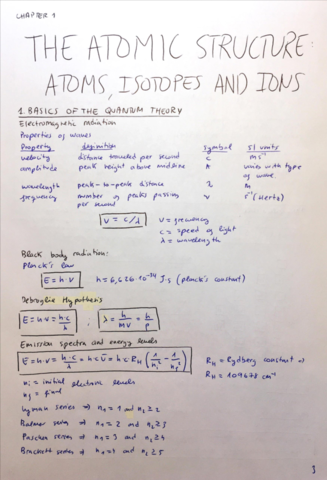 CHAPTER 1
THE ATOMIC STRUCTURE:
ATOMS, ISOTOPES AND IONS
1. BASICS OF THE QUANTUM THEORY
Electromagnetic radiation
Properties of waves
Property definition symbol SI units
velocity distance traveled per second c ms⁻¹
amplitude peak height above midline A varies with type of wave
wavelength peak-to-peak distance λ m
frequency number of peaks passing per second ν s⁻¹ (Hertz)
ν = c/λ
ν = frequency
c = speed of light
λ = wavelength
Black body radiation:
Planck's law
E = h·ν h = 6,626·10⁻³⁴ J·s (planck's constant)
Debroglie Hypothesis
E = hν = hc/λ , λ = h/mv = h/p
Emission spectra and energy levels
E = hν = h·c/λ = hcν̄ = hcR_H (1/n_i² - 1/n_f²)
R_H = Rydberg constant
R_H = 109678 cm⁻¹
n_i = initial electron levels
n_f = final
Lyman series ⇒ n₁ = 1 and n₂ ≥ 2
Balmer series ⇒ n₁ = 2 and n₂ ≥ 3
Paschen series ⇒ n₁ = 3 and n₂ ≥ 4
Brackett series ⇒ n₁ = 4 and n₂ ≥ 5